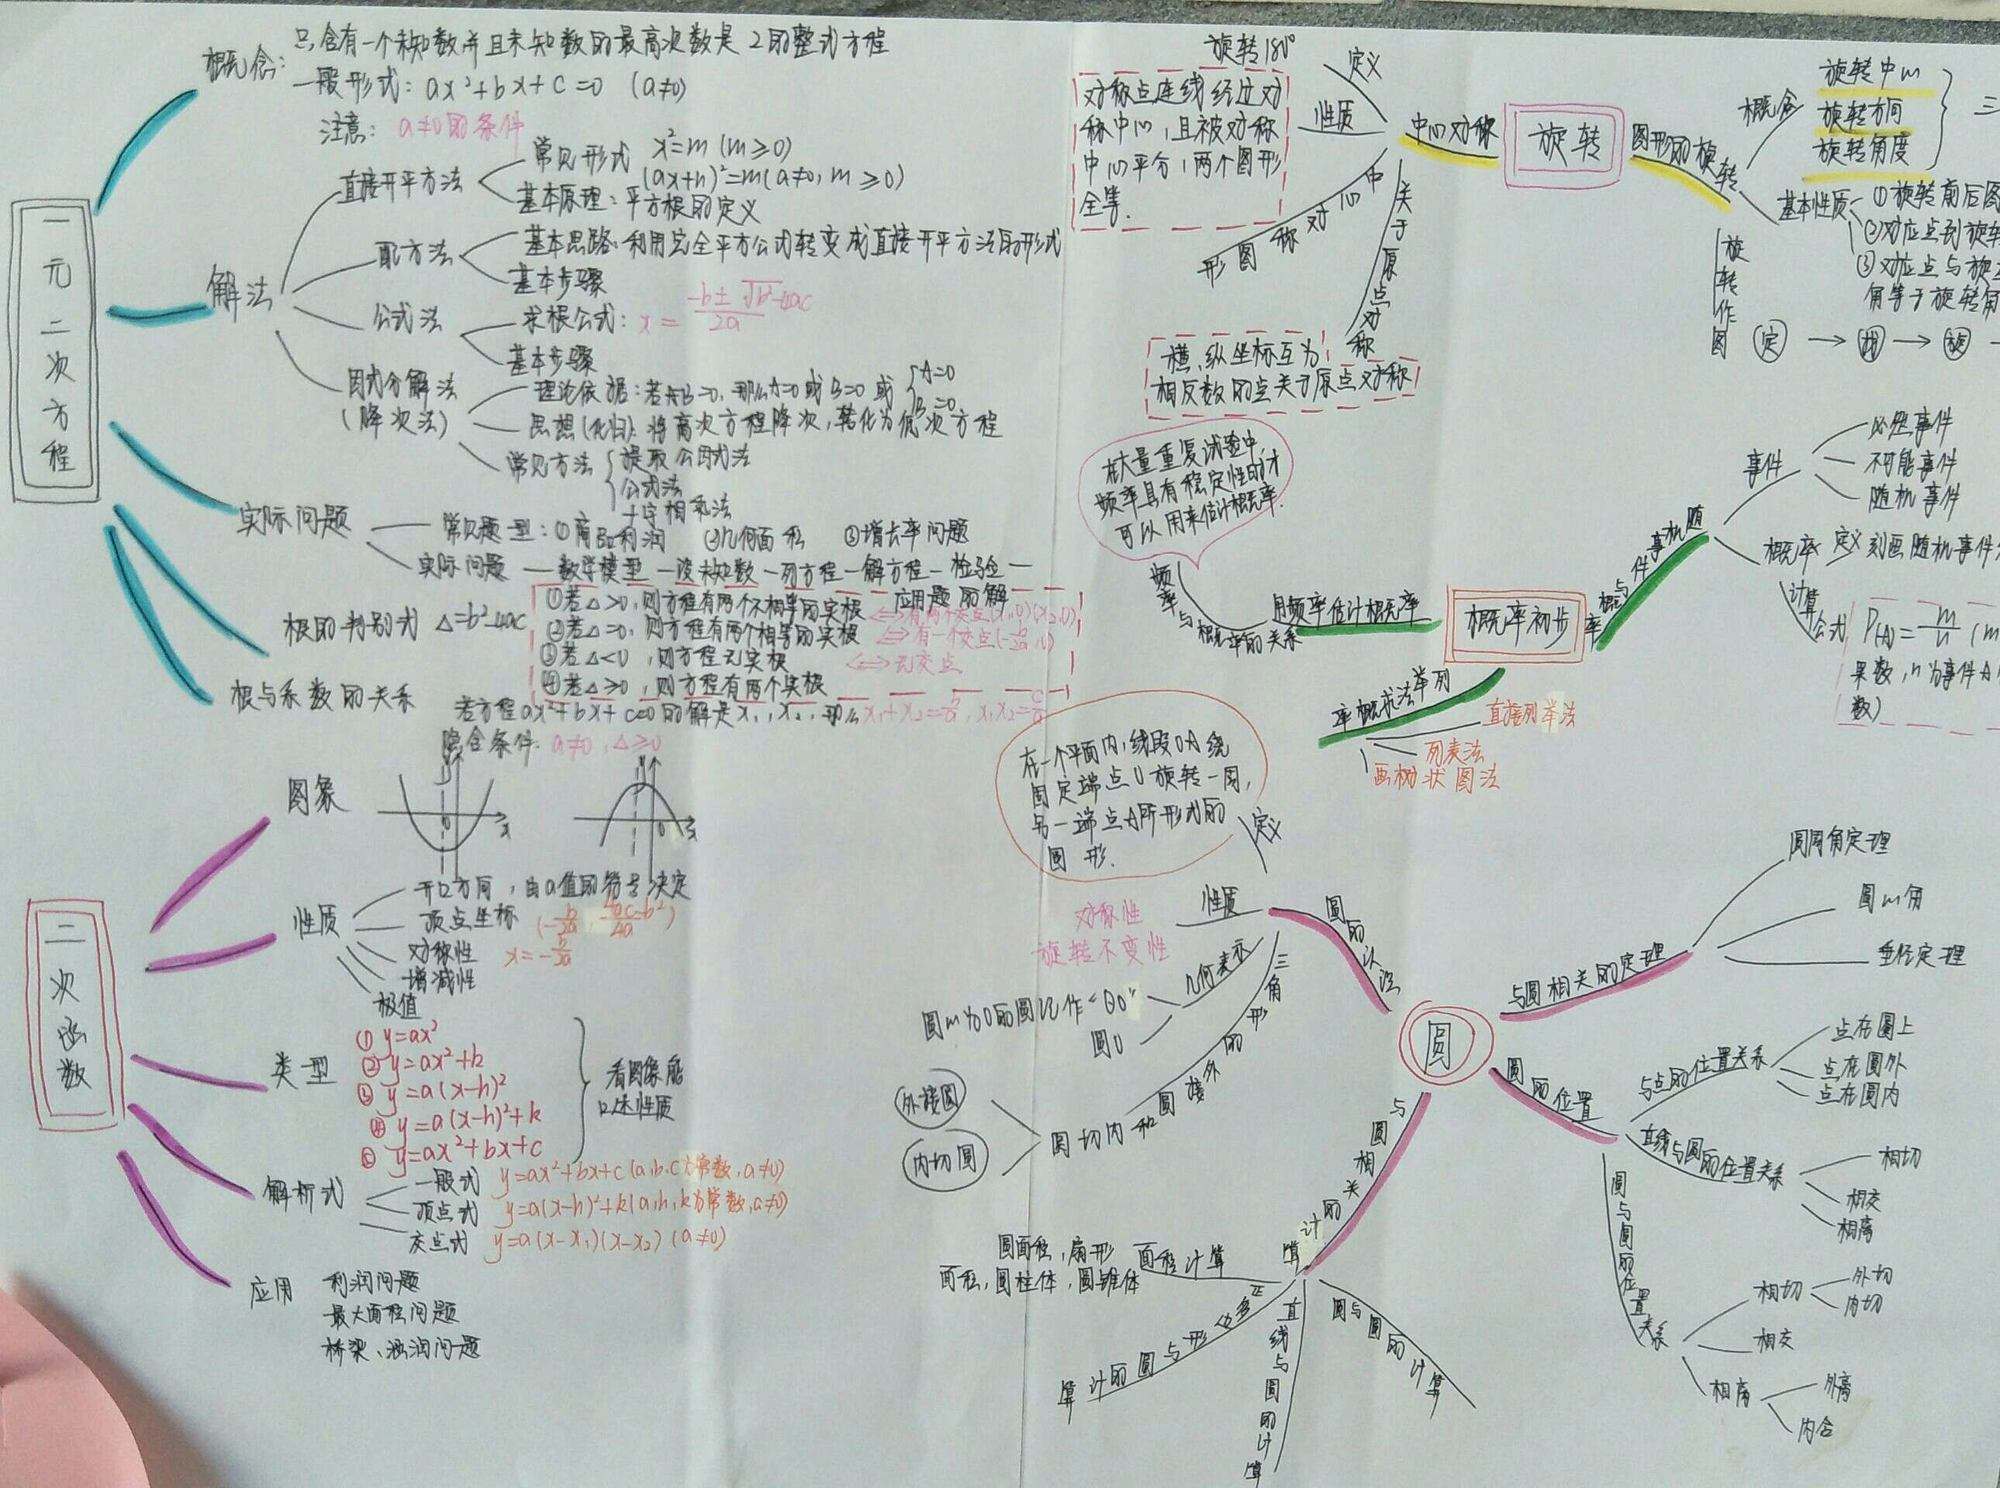 一元二次方程
概念：
只含有一个未知数并且未知数的最高次数是2的整式方程
一般形式：ax²+bx+c=0 (a≠0)
注意：a≠0的条件
解法
直接开平方法
常见形式 x²=m (m≥0)
(ax+n)²=m(a≠0, m≥0)
基本原理：平方根的定义
配方法
基本思路：利用完全平方公式转变成直接开平方法的形式
基本步骤
公式法
求根公式：x=(-b±√b²-4ac)/2a
基本步骤
因式分解法
(降次法)
理论依据：若A·B=0,那么A=0或B=0或{A=0 B=0
思想(化归)：将高次方程降次,转化为低次方程
常见方法
提取公因式法
公式法
十字相乘法
实际问题
常见题型：①商品利润 ②几何面积 ③增长率问题
实际问题—数学模型—设未知数—列方程—解方程—检验—
应用题的解
根的判别式 △=b²-4ac
①若△>0,则方程有两个不相等的实根
②若△=0,则方程有两个相等的实根 ⇔有一个交点
③若△<0,则方程无实根 ⇔无交点
④若△≥0,则方程有两个实根
根与系数的关系
若方程ax²+bx+c=0的解是x₁,x₂,那么x₁+x₂=-b/a,x₁x₂=c/a
隐含条件：a≠0,△≥0
二次函数
图象
y
y
0
x
0
x
性质
开口方向,由a值的符号决定
顶点坐标 (-b/2a, 4ac-b²/4a)
对称性 x=-b/2a
增减性
极值
类型
① y=ax²
② y=ax²+k
③ y=a(x-h)²
④ y=a(x-h)²+k
⑤ y=ax²+bx+c
看图象能
口述性质
解析式
一般式 y=ax²+bx+c(a,b,c为常数,a≠0)
顶点式 y=a(x-h)²+k(a,h,k为常数,a≠0)
交点式 y=a(x-x₁)(x-x₂) (a≠0)
应用
利润问题
最大面积问题
桥梁、涵洞问题
旋转
中心对称
定义
旋转180°
性质
对称点连线经过对
称中心,且被对称
中心平分,两个图形
全等.
中心对称图形
关于原点对称
横、纵坐标互为
相反数的点关于原点对称
图形的旋转
概念
旋转中心
旋转方向
旋转角度
三
基本性质
①旋转前后图
②对应点到旋转
③对应点与旋
角等于旋转角
旋转作图
定 → 找 → 旋
概率初步
随机事件与概率
事件
必然事件
不可能事件
随机事件
概率
定义 刻画随机事件
计算公式
P(A)=m/n (m
果数,n为事件A
数)
用频率估计概率
频率与概率的关系
在大量重复试验中,
频率具有稳定性时才
可以用来估计概率.
列举法求概率
直接列举法
列表法
画树状图法
圆
圆的认识
定义
在一个平面内,线段OA绕
固定端点O旋转一周,
另一端点A所形成的
图形.
性质
对称性
旋转不变性
几何表示
圆心为O的圆记作“⊙O”
圆O
三角形的外接圆和内切圆
外接圆
内切圆
与圆相关的定理
圆周角定理
圆心角
垂径定理
圆的位置
与点的位置关系
点在圆上
点在圆外
点在圆内
直线与圆的位置关系
相切
相交
相离
圆与圆的位置关系
相切
外切
内切
相交
相离
外离
内含
与圆相关的计算
面积计算
圆面积,扇形
面积,圆柱体,圆锥体
正多边形与圆的计算
直线与圆的计算
圆与圆的计算